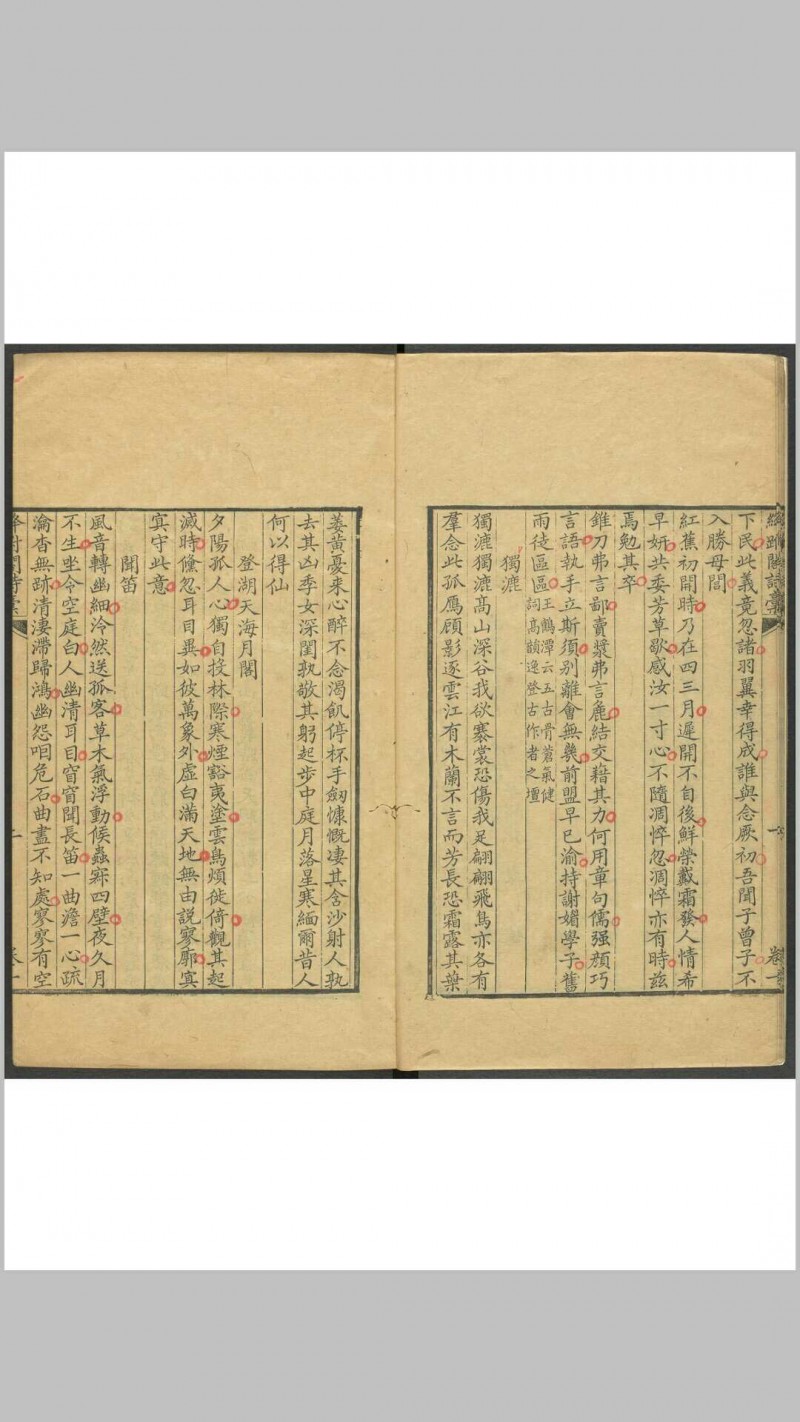 下民此義竟忽諸羽翼幸得成誰與念厥初吾聞子曾子不
入勝母閭
紅蕉初開時乃在四三月遲開不自後鮮榮戴霜發人情希
早妍共委芳草歇感汝一寸心不隨凋悴忽凋悴亦有時茲
焉勉其卒
錐刀弗言鄙賣漿弗言麁結交藉其力何用章句儒强顏巧
言語執手立斯須別離會無幾前盟早已渝持謝媚學子舊
雨徒區區
王鶴潭云五古骨蒼氣健
詞高韻逸登古作者之壇
獨漉
獨漉獨漉高山深谷我欲褰裳恐傷我足翩翩飛鳥亦各有
羣念此孤鴈顧影逐雲江有木蘭不言而芳長恐霜露其葉
萎黃憂来心醉不念渴飢停杯手劒慷慨淒其含沙射人孰
去其凶季女深閨孰敬其躬起步中庭月落星寒緬爾昔人
何以得仙
登湖天海月閣
夕陽孤人心獨自投林際寒煙豁夷塗雲鳥煩徙倚觀其起
滅時儵忽耳目異如彼萬象外虛白滿天地無由説寥廓寘
寘守此意
聞笛
風音轉幽細泠然送孤客草木氣浮動候蟲寀四壁夜久月
不生坐令空庭白人幽清耳目窅窅聞長笛一曲澹一心疏
瀹杳無跡清淒滯歸鴻幽怨咽危石曲盡不知處寥寥有空
二
卷一